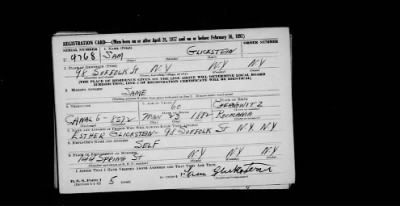 REGISTRATION CARD—(Men born on or after April 28, 1877 and on or before February 16, 1897)
SERIAL NUMBER 1. NAME (Print) ORDER NUMBER
U 768 SAM GLICKSTEIN
2. PLACE OF RESIDENCE (Print)
98 SUFFOLK ST N Y N Y
[THE PLACE OF RESIDENCE GIVEN ON THE LINE ABOVE WILL DETERMINE LOCAL BOARD
JURISDICTION; LINE 2 OF REGISTRATION CERTIFICATE WILL BE IDENTICAL]
3. MAILING ADDRESS
SAME
4. TELEPHONE 5. AGE IN YEARS 6. PLACE OF BIRTH
60
CANAL 6- MAY 1882 ROUMANIA
7. NAME AND ADDRESS OF PERSON WHO WILL ALWAYS KNOW YOUR ADDRESS
ESTHER GLICKSTEIN 98 SUFFOLK ST N Y N Y
8. EMPLOYER'S NAME AND ADDRESS
SELF
9. PLACE OF EMPLOYMENT OR BUSINESS
144 SPRING ST N Y N Y
I AFFIRM THAT I HAVE VERIFIED ABOVE ANSWERS AND THAT THEY ARE TRUE.
D. S. S. Form 1 Sam Glickstein